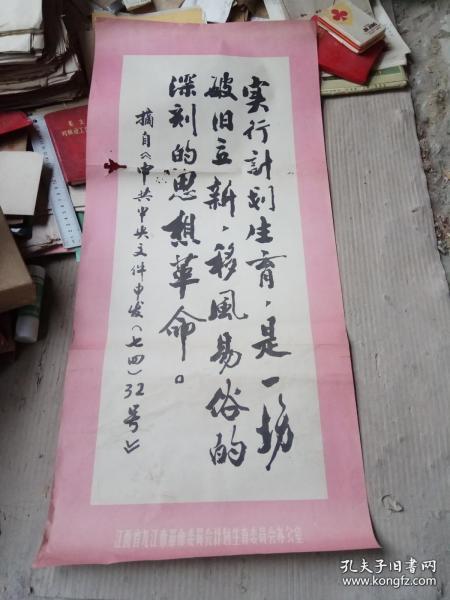 实行計划生育，是一场
破旧立新，移风易俗的
深刻的思想革命。
摘自《中共中央文件中发（七四）32号》
江西省九江市革命委员会计划生育委员会办公室
孔夫子旧书网